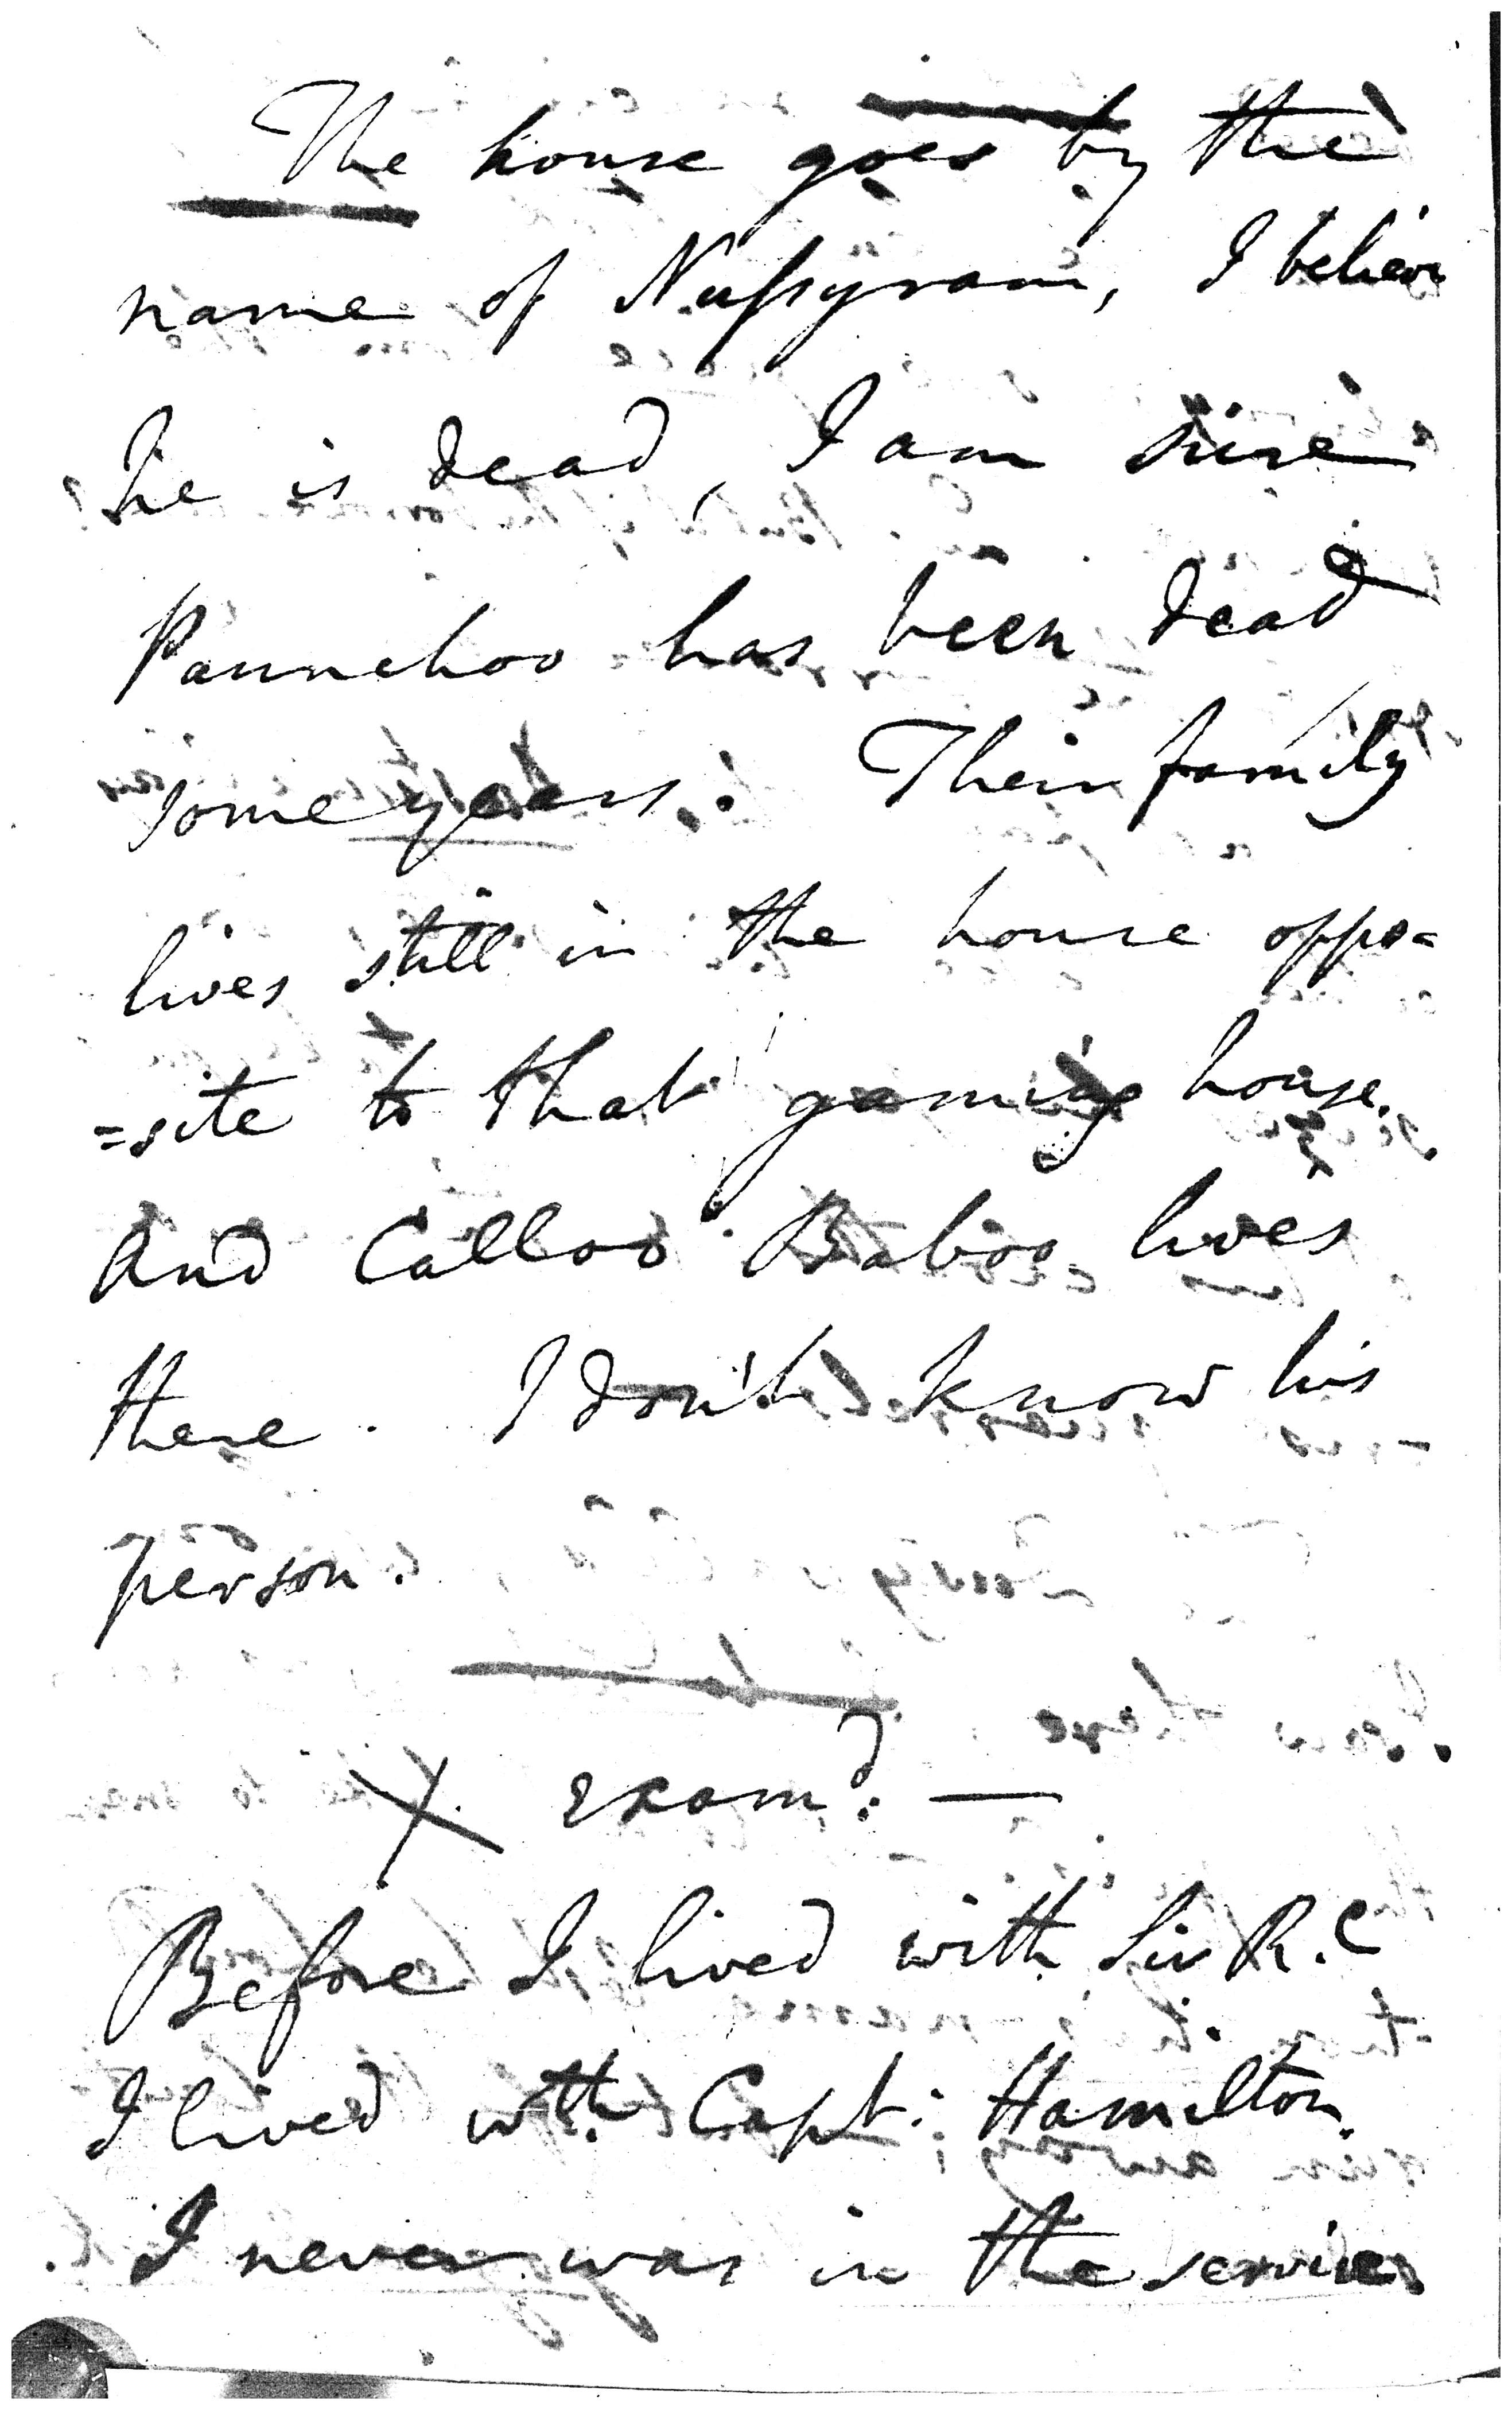 The house goes by the
name of Nussyram, I believe
he is dead, I am sure
Pannchoo has been dead
some years. Their family
lives still in the house oppo=
=site to that gaming house.
And Calloo Baboo lives
there. I don't know his
person.
X Exam.d —
Before I lived with Sir R. C
I lived wth. Capt: Hamilton.
I never was in the service